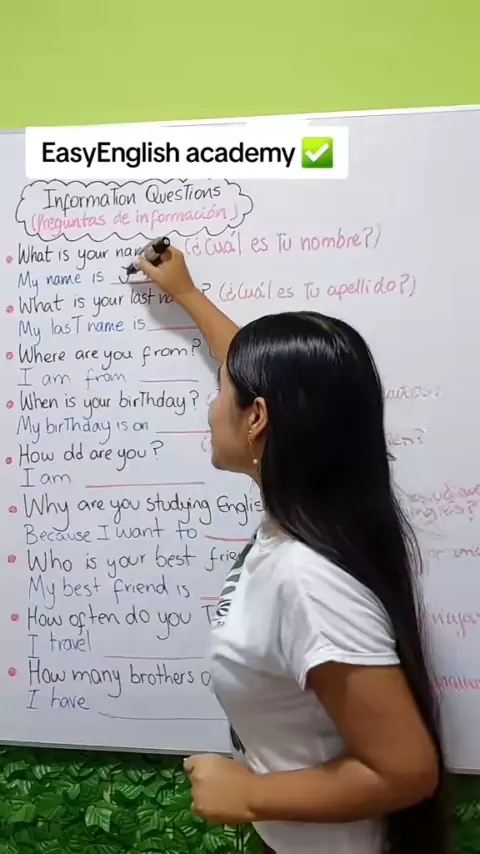 EasyEnglish academy ✅
Information Questions
(Preguntas de información)
What is your (¿Cuál es Tu nombre?)
My name is
What is your last ? (¿Cuál es Tu apellido?)
My last name is
Where are you from?
I am from
When is your birthday?
My birthday is on
How old are you?
I am
Why are you studying
Because I want to
Who is your best
My best friend is
How often do you
I travel
How many brothers
I have